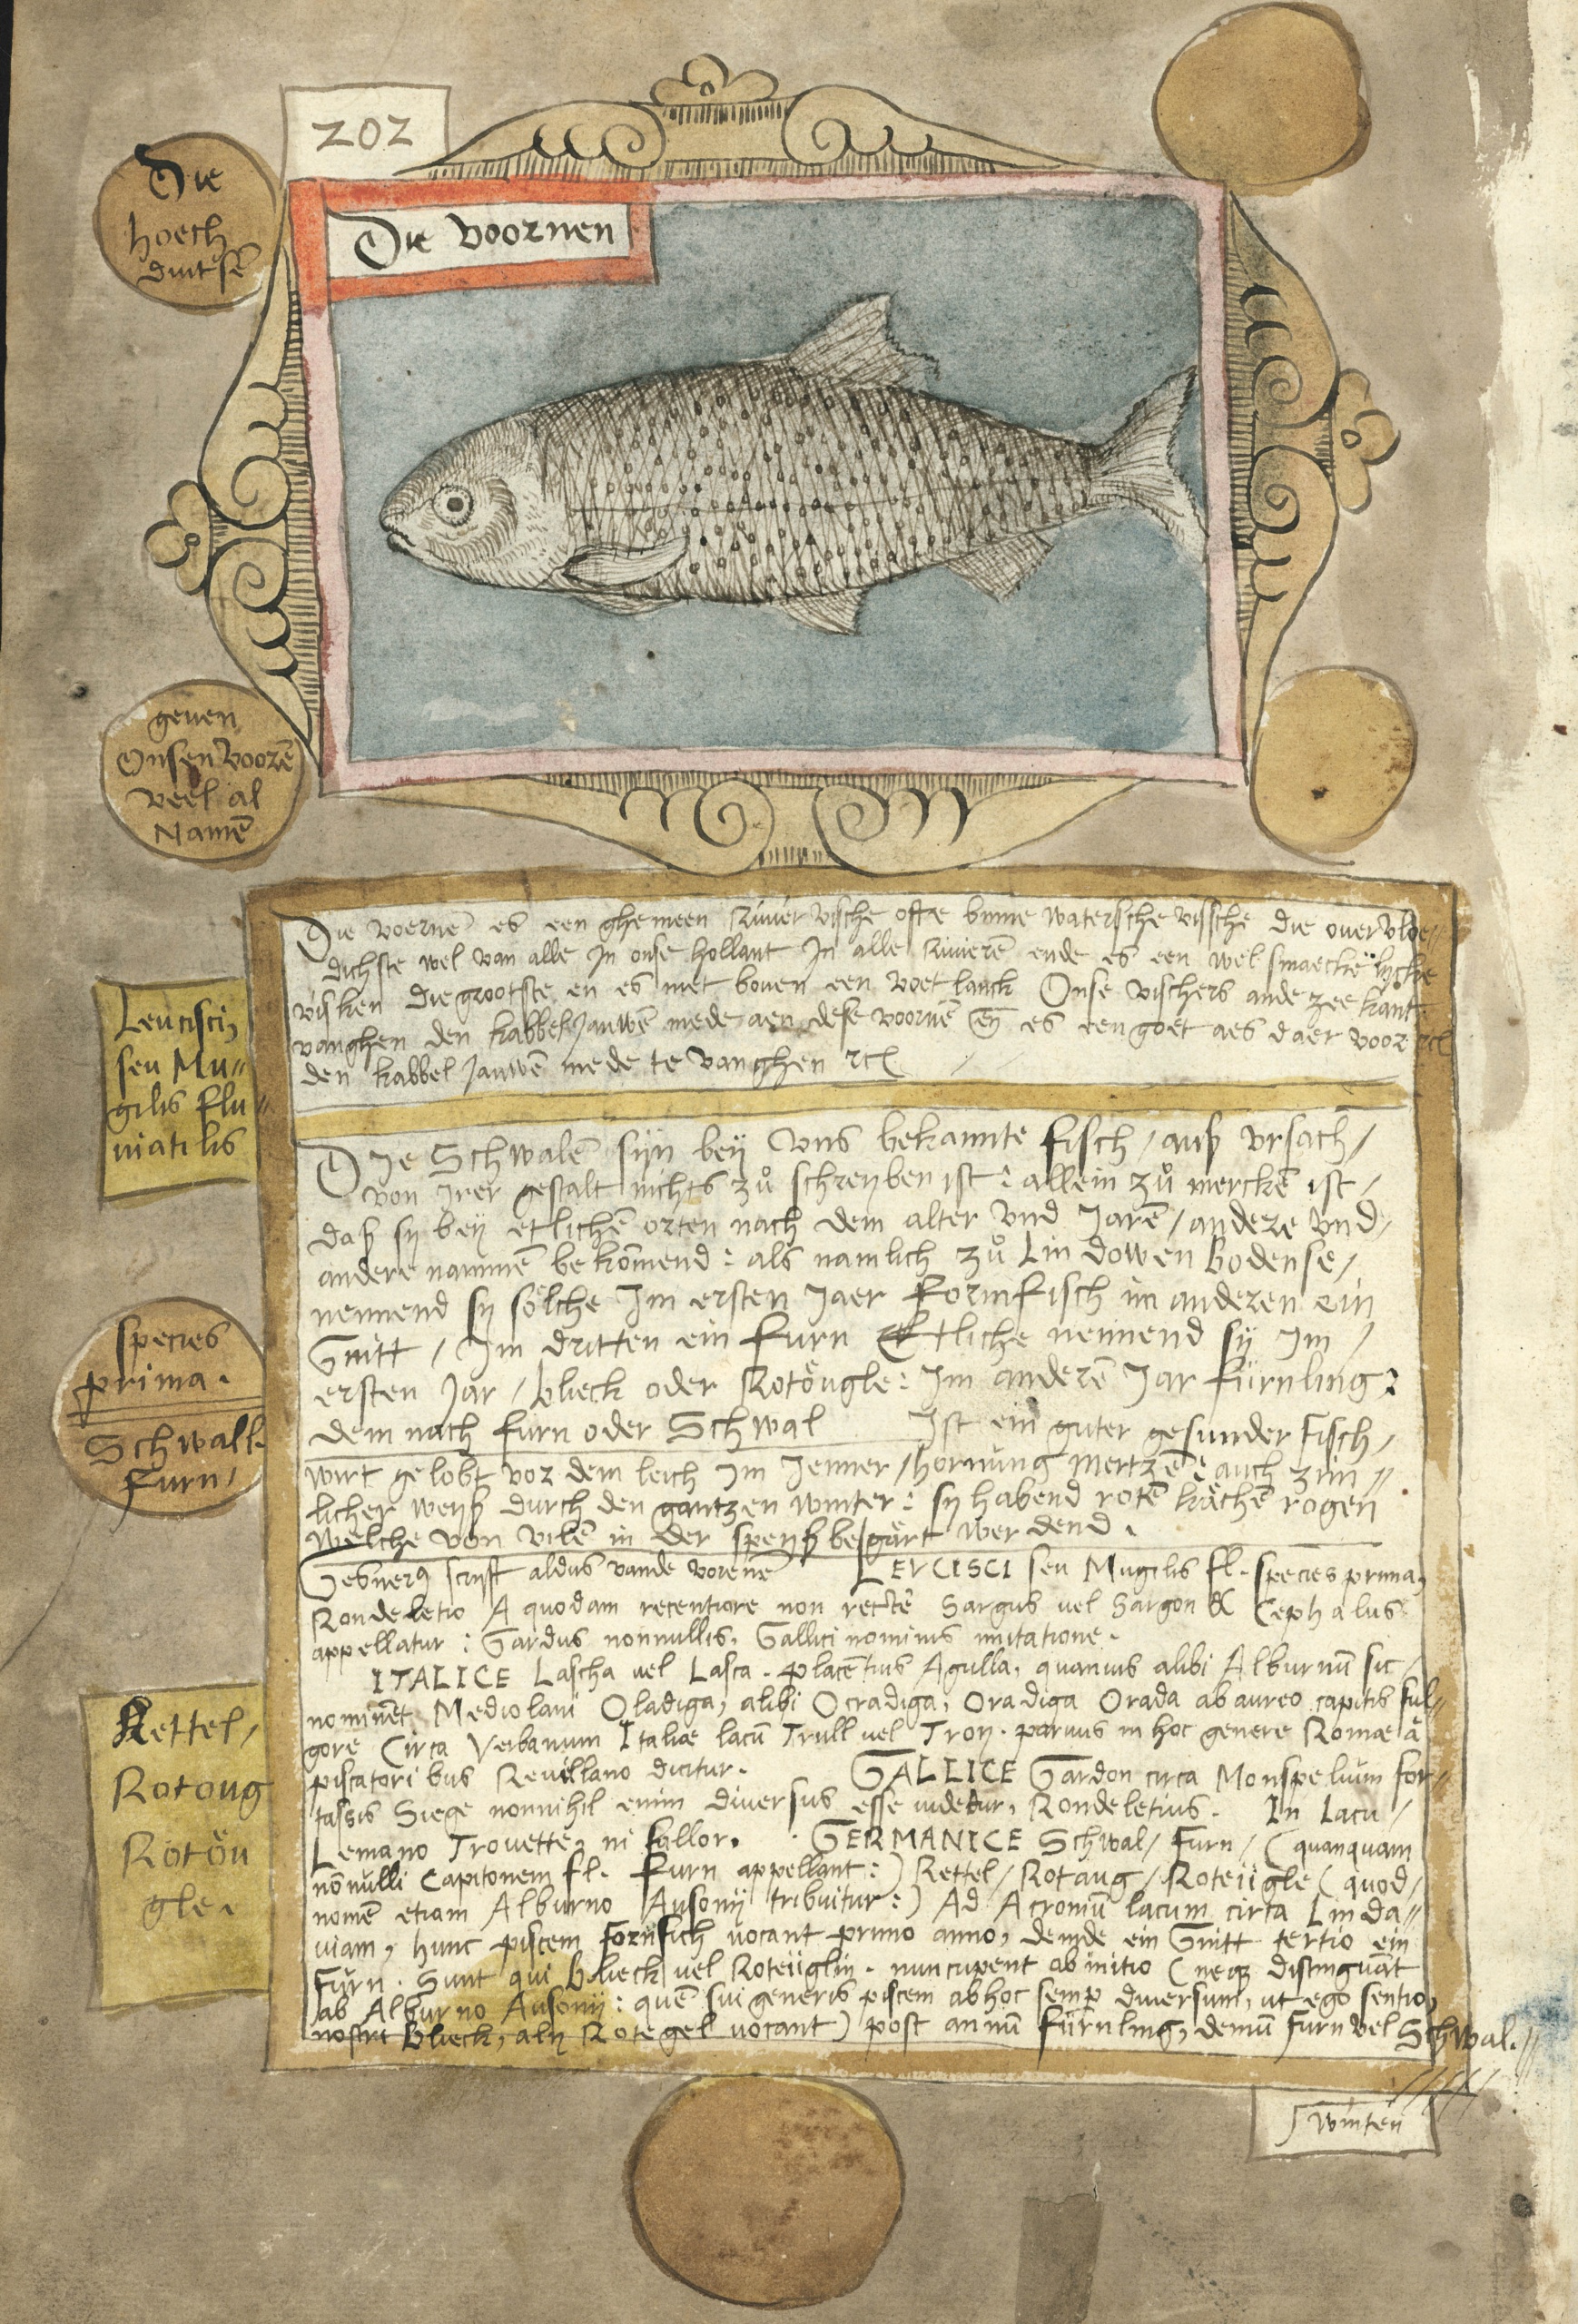 202
Die
hoech
duitsē
Die voornen
geuen
Onsen voorē
veel al
Namē
Die voernē es een ghemeen Rivier vische ofte binne watersche vissche die over vloe⸗
dichste wel van alle In onse hollant In alle Rivierē ende es een wel smaeckē lycke
visken die grootste en es niet boven een voet lanck Onse vischers ande zee kant
vanghen den kabbeljauwē mede aen dese voornē Eñ es een goet aes daer voor
den kabbel Jauwē mede te vanghen
Leucisci,
seu Mu⸗
gilis flu⸗
uiatilis
Die Schwalē syn bey Vns bekannte fisch/ auß vrsach/
von Jrer gestalt nichts zů schreyben ist: allein zů merckē ist/
daß sy bey etlichē orten nach dem alter vnd Jarē/ andere vnd/
andere nammē bekōmend: als namlich zů Lindowen Bodense/
nennend sy sölche Im ersten Jaer Fornfisch im anderen ein
Gnitt/ Im dritten ein Furn Etliche nennend sy Im/
ersten Jar/ blieck oder Rotöugle: Im anderē Jar fürnling:
dem nach furn oder Schwal Ist ein guter gesunder Fisch/
species
prima.
Schwall.
Furn/
wirt gelobt vor dem leich Im Jenner/ hornung Mertzē: auch zim⸗
licher weyß durch den gantzen winter: sy habend rotē rogen
welche von vilē in der speyß begärt werdend.
Gesnerꝰ scrijft aldus vande vorenē LEVCISCI seu Mugilis fl. species prima,
Rondeletio A quodam recentiore non rectè Sargus vel Sargon & Cephalus
appellatur: Gardus nonnullis, Gallici nominis imitatione.
ITALICE Lascha vel Lasca. placētius Agulla, quamuis alibi Alburnū sic/
nominēt Mediolani Oladiga, alibi Ocradiga, Oradiga Orada ab aureo capitis ful⸗
gore Circa Verbanum Italiæ lacū Trull vel Troy. paruus in hoc genere Romæ à
piscatoribus Reuillano dicitur. GALLICE Gardon circa Monspelium for⸗
tassis Siege nonnihil enim diuersus esse uidetur, Rondeletius. In Lacu/
Lemano Trouette, ni fallor. GERMANICE Schwal/ Furn/ (quanquam
nōnulli Capitonem fl. Furn appellant:) Rettel/ Rotaug/ Roteügle (quod/
nomē etiam Alburno Ausonij tribuitur:) Ad Acroniū lacum circa Linda⸗
uiam, hunc piscem Fornfich vocant primo anno, deinde ein Gnitt tertio ein
Fürn. Sunt qui Blieck vel Roteüglin. nuncupent ab initio (neqꝫ distinguāt
ab Alburno Ausonij: quē sui generis piscem ab hoc semp diuersum, ut ego sentio,
nostri Blieck, alij Rotegel vocant) post annū fürnling, demū Furn vel Schwal.
Rettel/
Rotoug
Rotöu
gle.
winten